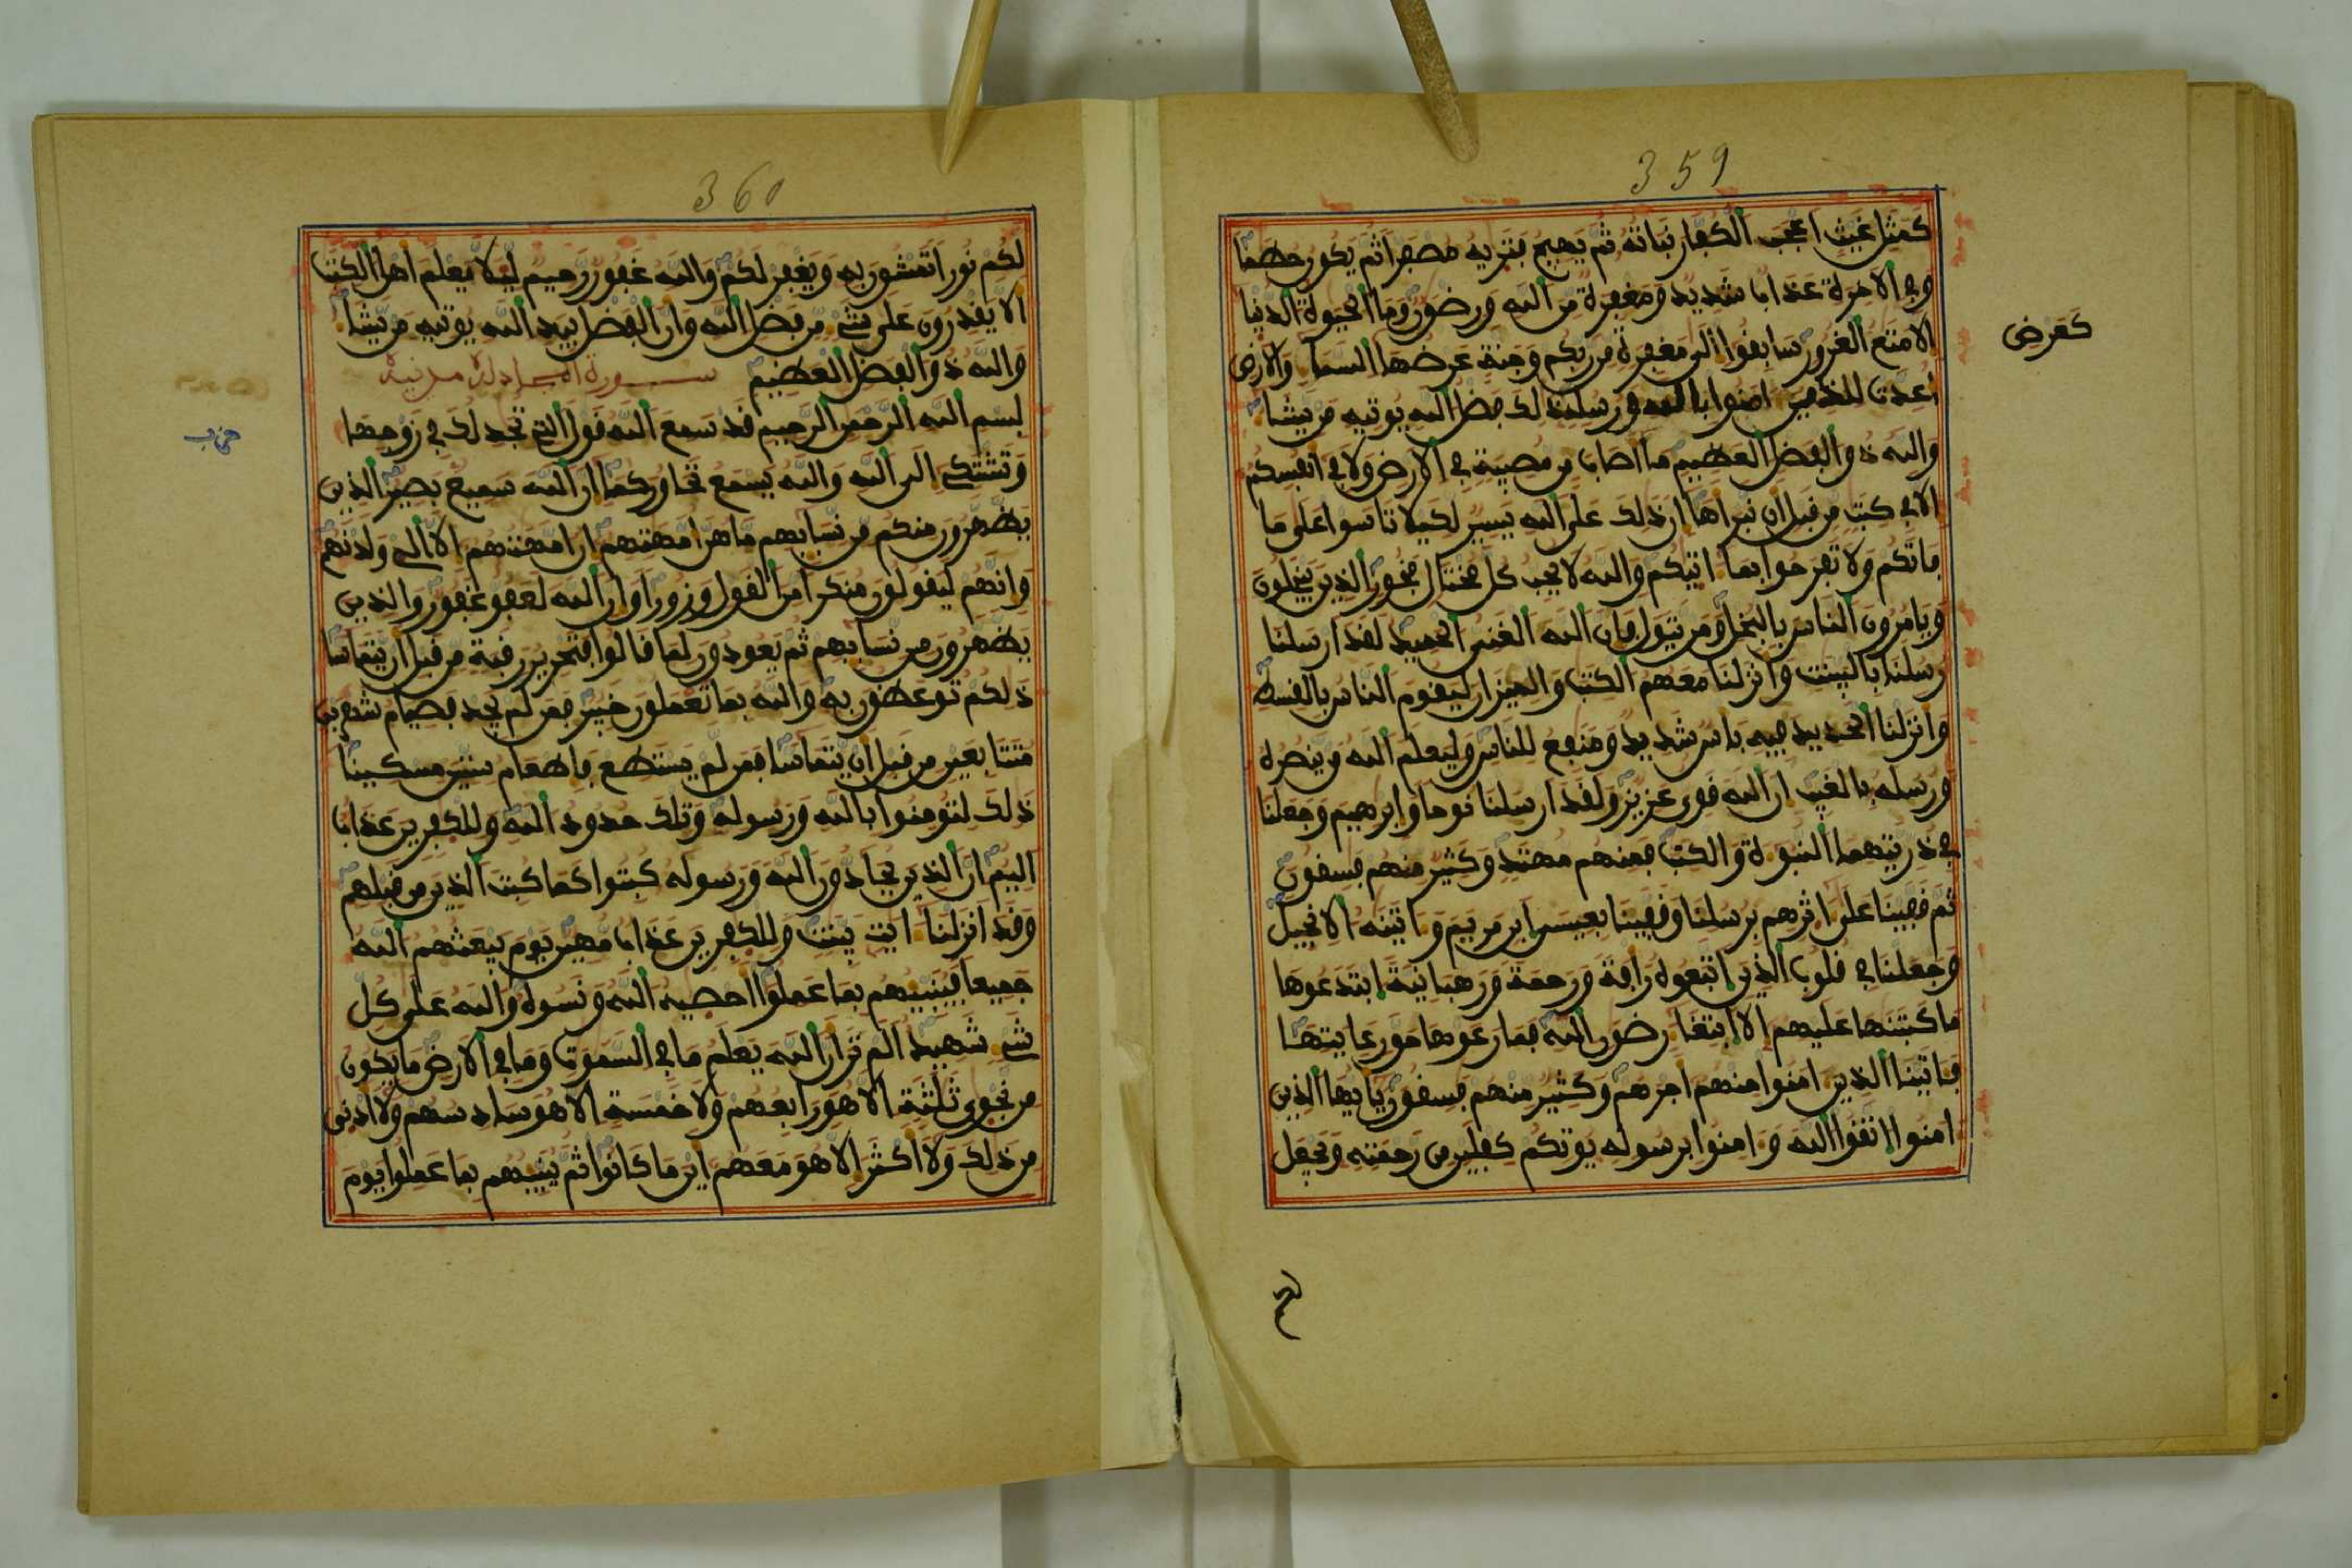 359
كمثل غيث اعجب الكفار نباته ثم يهيج فتريه مصفرا ثم يكون حطما
وفي الاخرة عذاب شديد ومغفرة من الله ورضون وما الحيوة الدنيا
الا متع الغرور سابقوا الى مغفرة من ربكم وجنة عرضها السما والارض
كعرض
اعدت للذين امنوا بالله ورسله ذلك فضل الله يوتيه من يشا
والله ذو الفضل العظيم ما اصاب من مصيبة في الارض ولا في انفسكم
الا في كتب من قبل ان نبراها ان ذلك على الله يسير لكيلا تاسوا على ما
فاتكم ولا تفرحوا بما اتيكم والله لا يحب كل مختال فخور الذين يبخلون
ويامرون الناس بالبخل ومن يتول فان الله الغني الحميد لقد ارسلنا
رسلنا بالبينت وانزلنا معهم الكتب والميزان ليقوم الناس بالقسط
وانزلنا الحديد فيه باس شديد ومنفع للناس وليعلم الله من ينصره
ورسله بالغيب ان الله قوي عزيز ولقد ارسلنا نوحا وابرهيم وجعلنا
في ذريتهما النبوة والكتب فمنهم مهتد وكثير منهم فسقون
ثم قفينا على اثرهم برسلنا وقفينا بعيسى ابن مريم واتينه الانجيل
وجعلنا في قلوب الذين اتبعوه رافة ورحمة ورهبانية ابتدعوها
ما كتبنها عليهم الا ابتغا رضون الله فما رعوها حق رعايتها
فاتينا الذين امنوا منهم اجرهم وكثير منهم فسقون يايها الذين
امنوا اتقوا الله وامنوا برسوله يوتكم كفلين من رحمته ويجعل
لكم
360
لكم نورا تمشون به ويغفر لكم والله غفور رحيم ليلا يعلم اهل الكتب
الا يقدرون على شي من فضل الله وان الفضل بيد الله يوتيه من يشا
والله ذو الفضل العظيم سورة المجادلة مدنية
بسم الله الرحمن الرحيم قد سمع الله قول التي تجدلك في زوجها
حزب
وتشتكي الى الله والله يسمع تحاوركما ان الله سميع بصير الذين
يظهرون منكم من نسايهم ما هن امهتهم ان امهتهم الا الي ولدنهم
وانهم ليقولون منكرا من القول وزورا وان الله لعفو غفور والذين
يظهرون من نسايهم ثم يعودون لما قالوا فتحرير رقبة من قبل ان يتماسا
ذلكم توعظون به والله بما تعملون خبير فمن لم يجد فصيام شهرين
متتابعين من قبل ان يتماسا فمن لم يستطع فاطعام ستين مسكينا
ذلك لتومنوا بالله ورسوله وتلك حدود الله وللكفرين عذاب
اليم ان الذين يحادون الله ورسوله كبتوا كما كبت الذين من قبلهم
وقد انزلنا ايت بينت وللكفرين عذاب مهين يوم يبعثهم الله
جميعا فينبيهم بما عملوا احصيه الله ونسوه والله على كل
شي شهيد الم تر ان الله يعلم ما في السموت وما في الارض ما يكون
من نجوى ثلثة الا هو رابعهم ولا خمسة الا هو سادسهم ولا ادنى
من ذلك ولا اكثر الا هو معهم اين ما كانوا ثم ينبيهم بما عملوا يوم